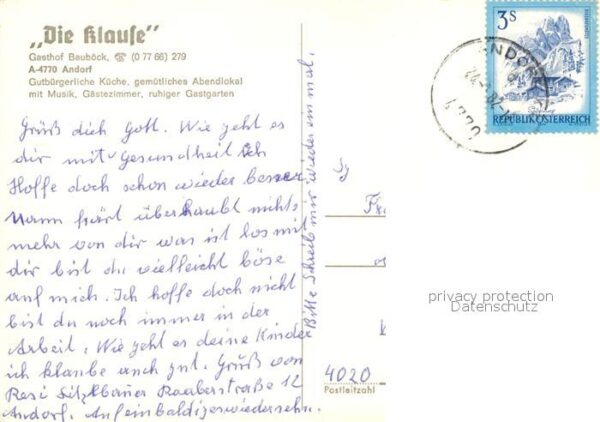 „Die Klause"
Gasthof Bauböck, ☎ (0 77 66) 279
A-4770 Andorf
Gutbürgerliche Küche, gemütliches Abendlokal
mit Musik, Gästezimmer, ruhiger Gastgarten
Grüß dich Gott. Wie geht es
dir mit Gesundheit ich
Hoffe doch schon wieder besser
Mann hört überhaubt nichts
mehr von dir was ist los mit
dir bist du vielleicht böse
auf mich. Ich hoffe doch nicht
bist du noch immer in der
Arbeit. Wie geht es deine Kinder
ich klaube auch gut. Grüß von
Resi Raaberstraße 12
Andorf. Auf ein baldiges wiedersehn.
Bitte Schreib mir wieder ein mal.
3S
REPUBLIK ÖSTERREICH
ANDORF
4770
privacy protection
Datenschutz
4020
Postleitzahl